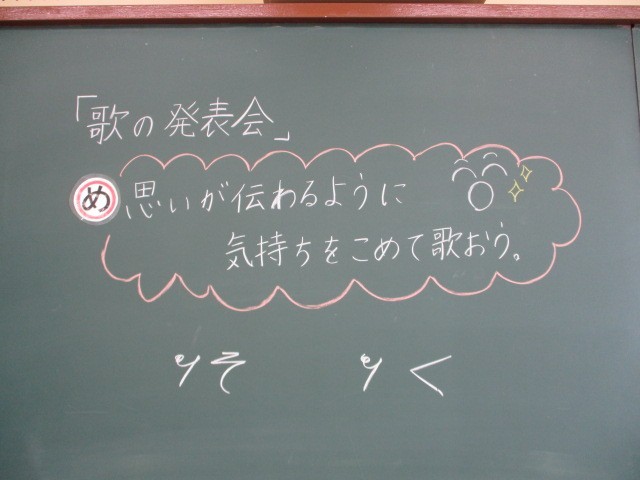 「歌の発表会」
め 思いが伝わるように
気持ちをこめて歌おう。